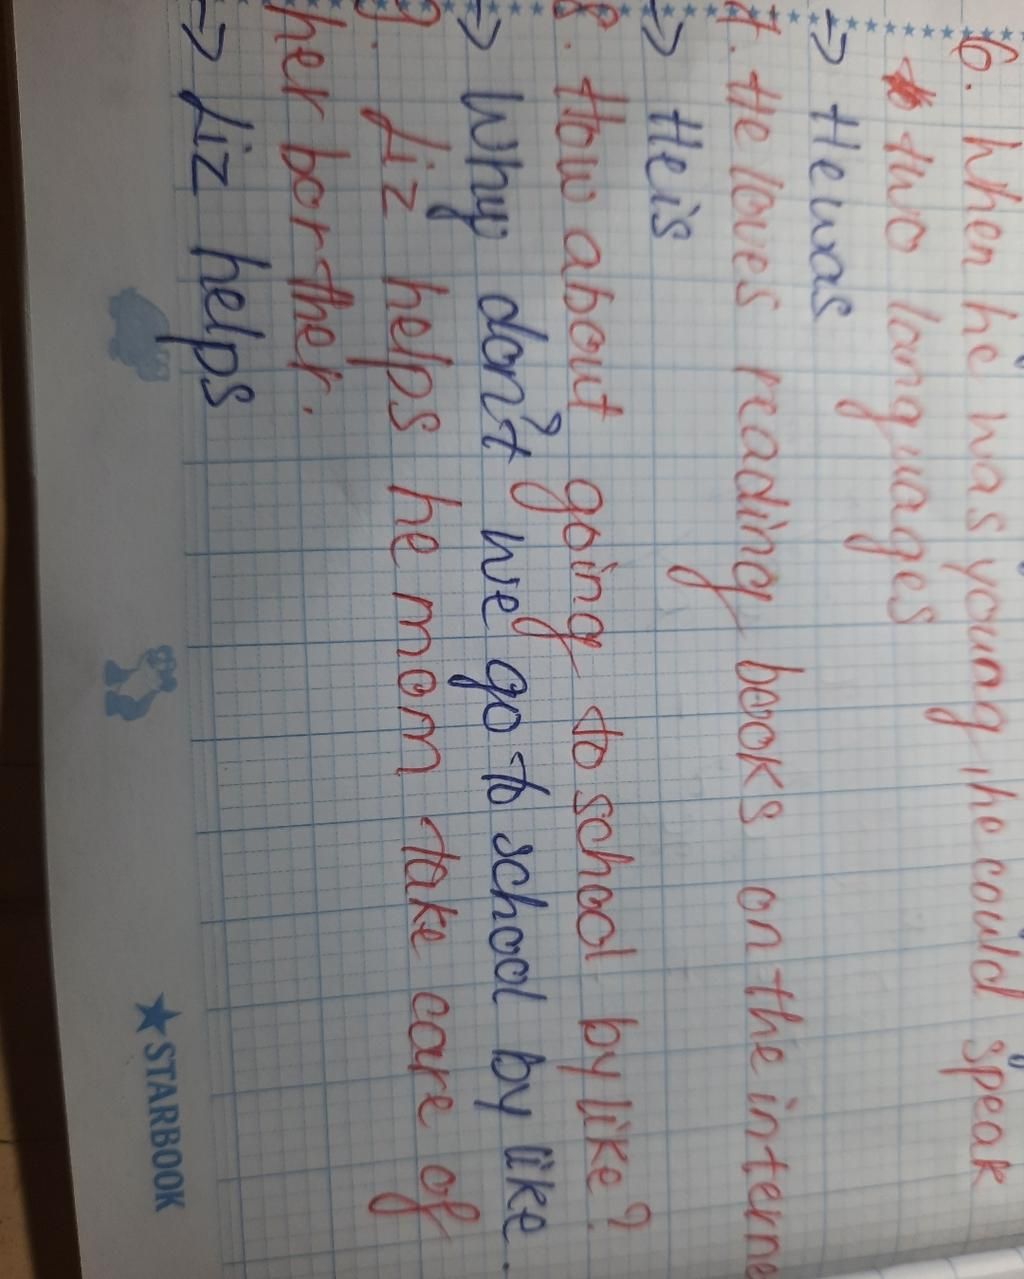 6. When he was young, he could speak
two languages
=> He was
7. He loves reading books on the interne
=> He is
8. How about going to school by like?
=> Why don't we go to school by like.
9. Liz helps he mom take care of
her borther.
=> Liz helps
STARBOOK